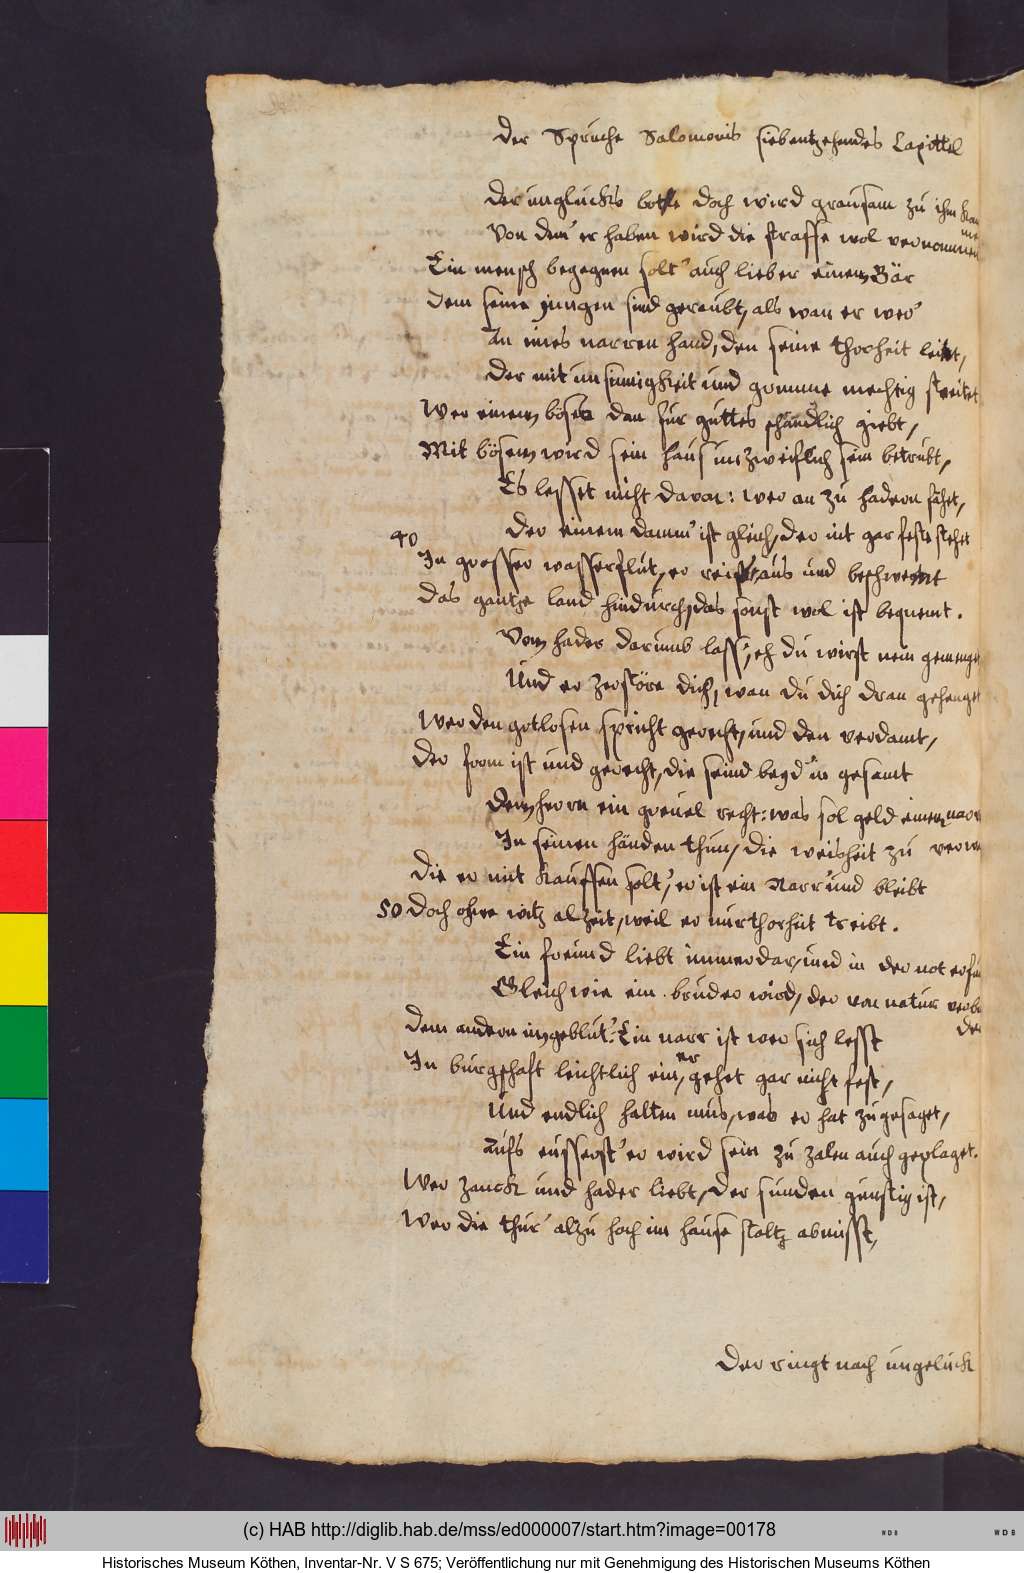 Der Spruche Salomonis siebentzehendes Capittel
Der unglucks botte doch wird grausam zu ihm kom
men
Von dem' er haben wird die straffe wol vernommen
Ein mensch begegnen solt' auch lieber einem Bär
Dem seine jungen sind geraubt, als wan er wer'
An eines narren hand, den seine thorheit leitet,
Der mit unsinnigkeit und grimme mechtig streitet
Wer einem bösen dan fur guttes schändlich giebt,
Mit bösem wird sein haus unzweiflich sein betrubt,
Es lesset nicht davon: wer an zu hadern fähet,
40
Der einem damm' ist gleich, der nit gar feste stehet
In grosser wasserflut, er reisst aus und beschwemt
Das gantze land hindurch, das sonst wol ist bequemt.
Vom hader darumb lass', eh du wirst nein gemenget
Und er zerstöre dich, wan du dich dran gehenget
Wer den gotlosen spricht gerecht, und den verdamt,
Der from ist und gerecht, die seind beyd' in gesamt
Dem herrn ein greuel recht: was sol geld einem narr
In seinen händen thun, die weisheit zu
Die er mit kauffen solt', er ist ein Narr' und bleibt
50 Doch ohne witz alzeit, weil er nur thorheit treibt.
Ein freund liebt immerdar, und in der not
Gleich wie ein bruder wird, der von natur verbu
den
Dem andern im geblut': Ein narr ist wer sich lesst
In burgschaft leichtlich ein, er gehet gar nicht fest,
Und endlich halten mus, was er hat zugesaget,
Aufs eusserst' er wird sein zu zalen auch geplaget.
Wer zanck und hader liebt, der sunden gunstig ist,
Wer die thur' alzu hoch im hause stoltz abmisst,
Der ringt nach ungeluck
(c) HAB http://diglib.hab.de/mss/ed000007/start.htm?image=00178
WDB
WDB
Historisches Museum Köthen, Inventar-Nr. V S 675; Veröffentlichung nur mit Genehmigung des Historischen Museums Köthen